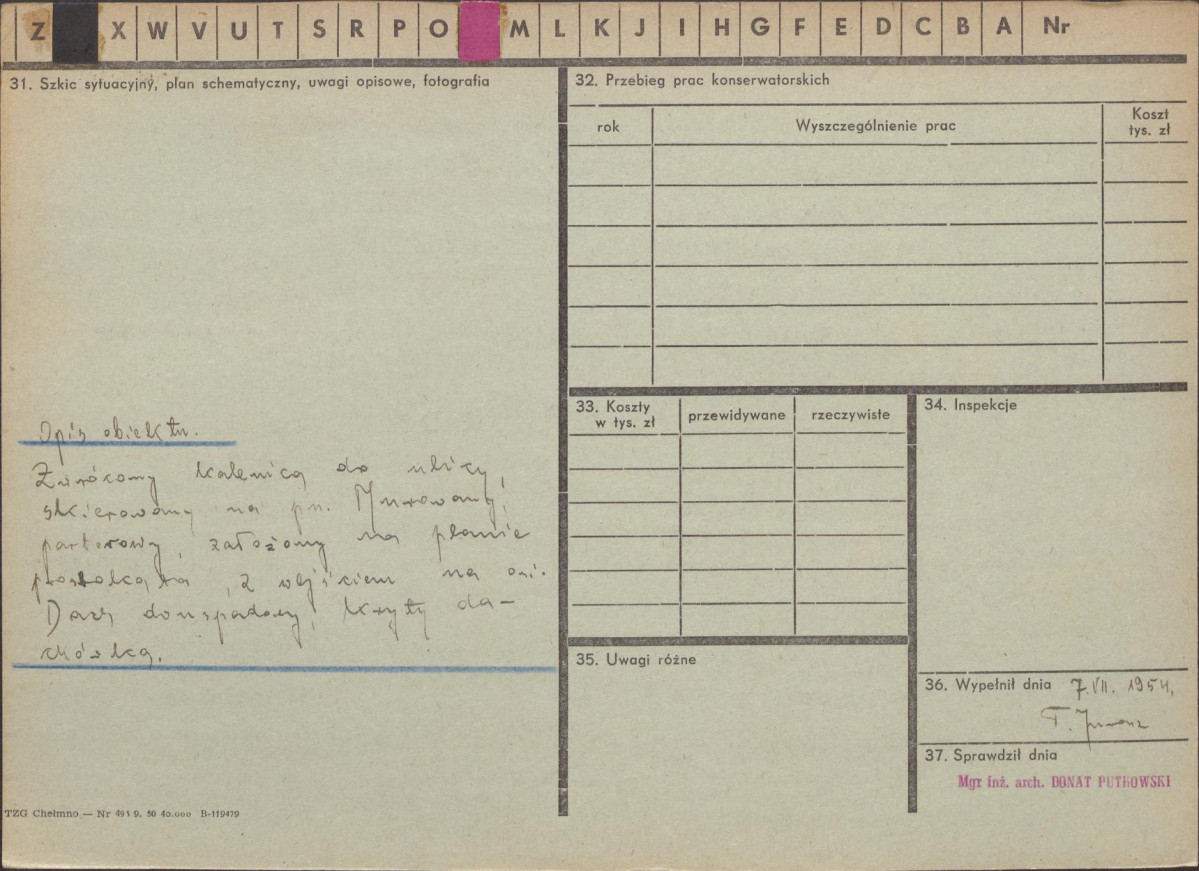 Z X W V U T S R P O M L K J I H G F E D C B A Nr
31. Szkic sytuacyjny, plan schematyczny, uwagi opisowe, fotografia
Opis obiektu.
Zwrócony kalenicą do ulicy,
skierowany na pn. Murowany,
parterowy, założony na planie
prostokąta, z wejściem na osi.
Dach dwuspadowy, kryty da-
chówką.
TZG Chełmno — Nr 495 9. 50 40.000 B-119479
32. Przebieg prac konserwatorskich
rok Wyszczególnienie prac Koszt
tys. zł
33. Koszty
w tys. zł przewidywane rzeczywiste
34. Inspekcje
35. Uwagi różne
36. Wypełnił dnia 7.VII. 1954.
37. Sprawdził dnia
Mgr inż. arch. DONAT PUTKOWSKI